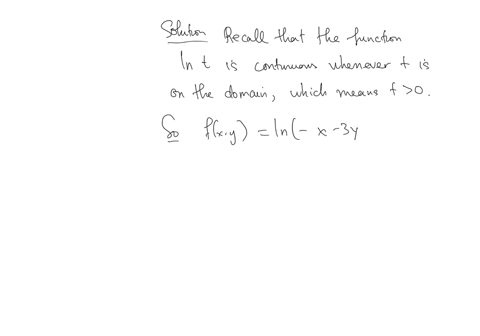 Solution Recall that the function
ln t is continuous whenever t is
on the domain, which means t > 0.
So f(x,y) = ln(- x -3y